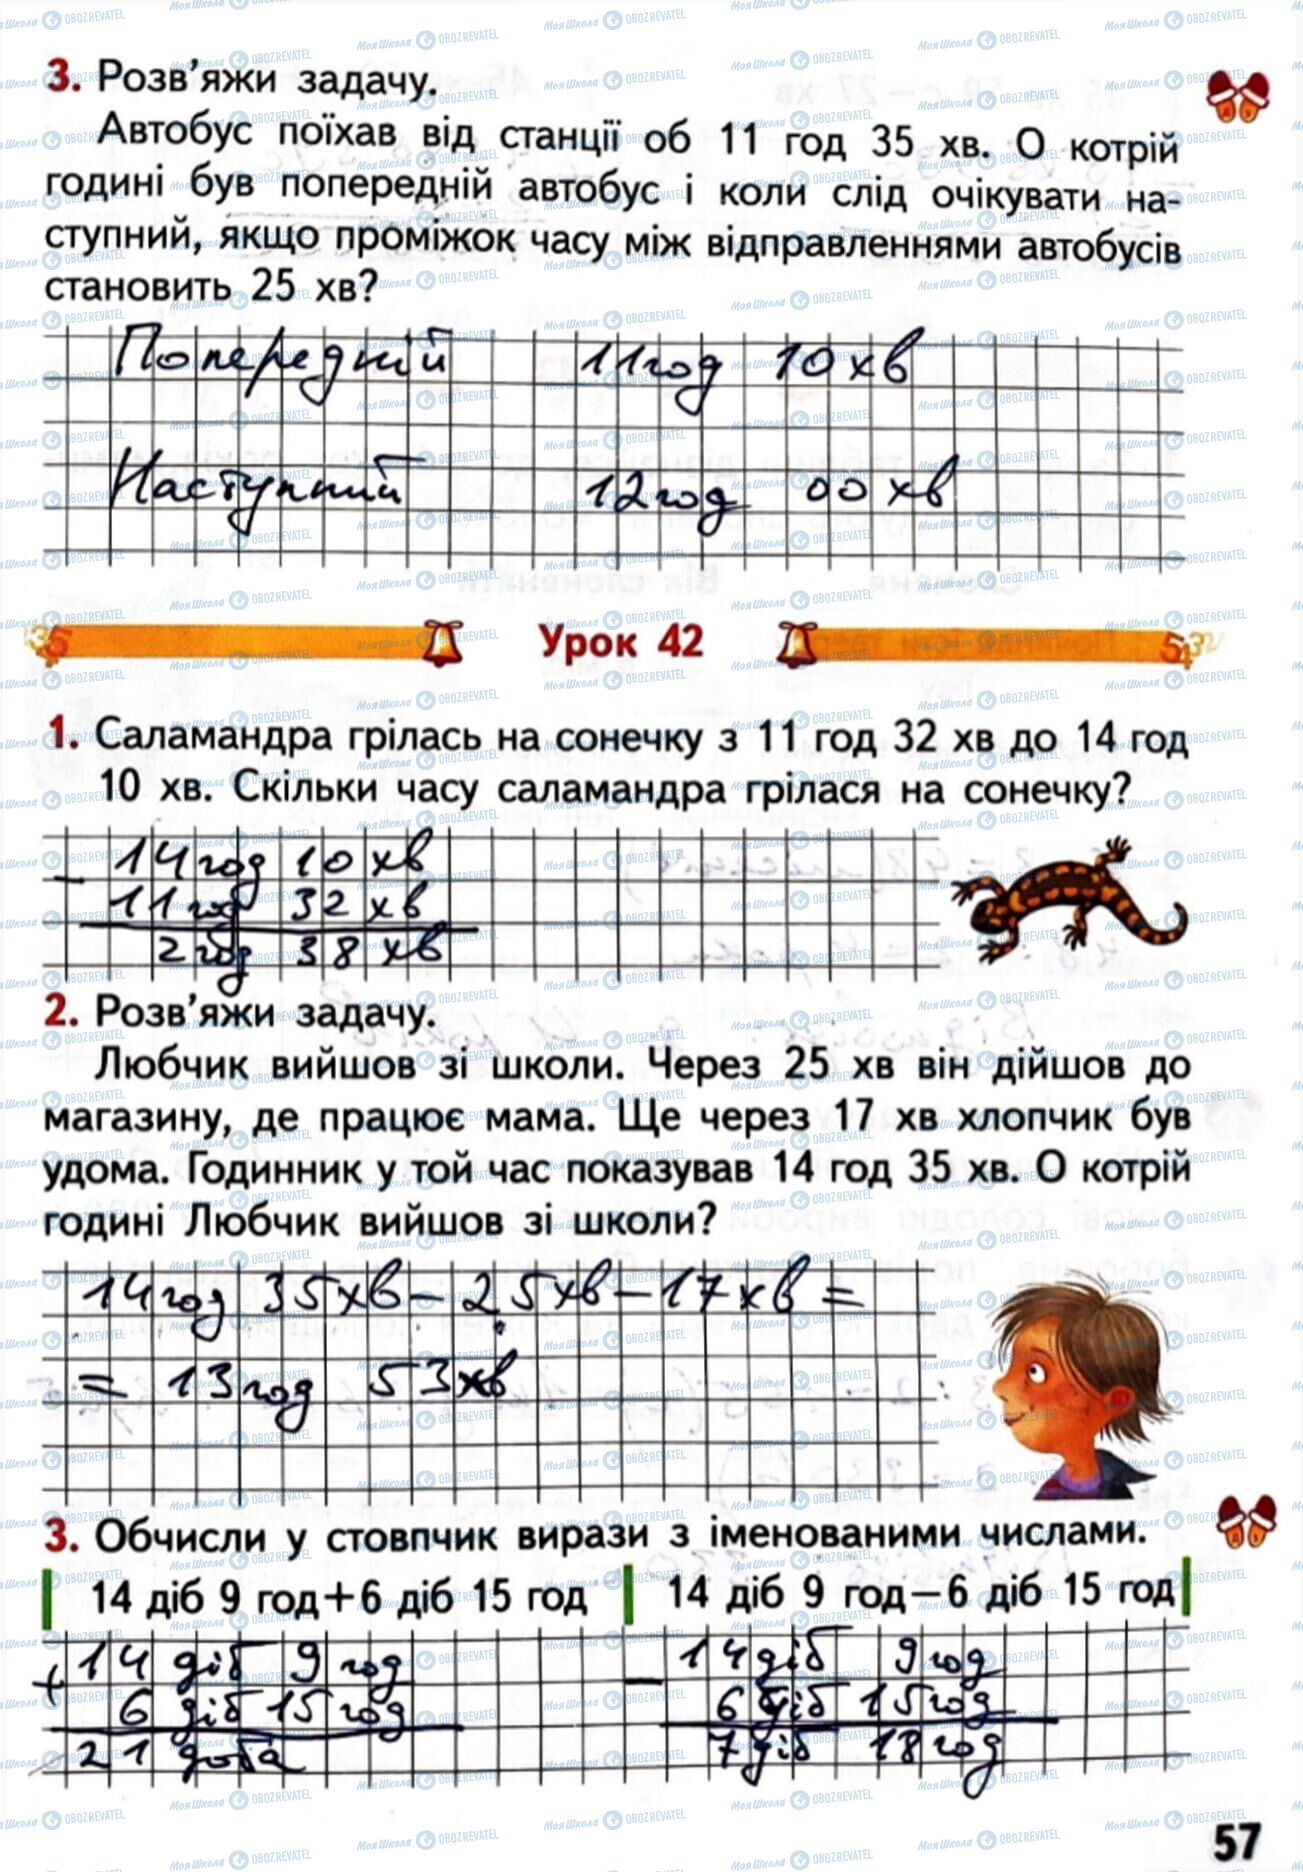 3. Розв'яжи задачу.
Автобус поїхав від станції об 11 год 35 хв. О котрій
годині був попередній автобус і коли слід очікувати на-
ступний, якщо проміжок часу між відправленнями автобусів
становить 25 хв?
Попередній 11год 10хв
Наступний 12год 00хв
Урок 42
1. Саламандра грілась на сонечку з 11 год 32 хв до 14 год
10 хв. Скільки часу саламандра грілася на сонечку?
14год 10хв
− 11год 32хв
2год 38хв
2. Розв'яжи задачу.
Любчик вийшов зі школи. Через 25 хв він дійшов до
магазину, де працює мама. Ще через 17 хв хлопчик був
удома. Годинник у той час показував 14 год 35 хв. О котрій
годині Любчик вийшов зі школи?
14год 35хв − 25хв − 17хв =
= 13год 53хв
3. Обчисли у стовпчик вирази з іменованими числами.
14 діб 9 год+6 діб 15 год 14 діб 9 год−6 діб 15 год
+ 14 діб 9 год − 14діб 9год
6 діб 15 год 6діб 15год
21 доба 7діб 18год
57
МояШкола OBOZREVATEL